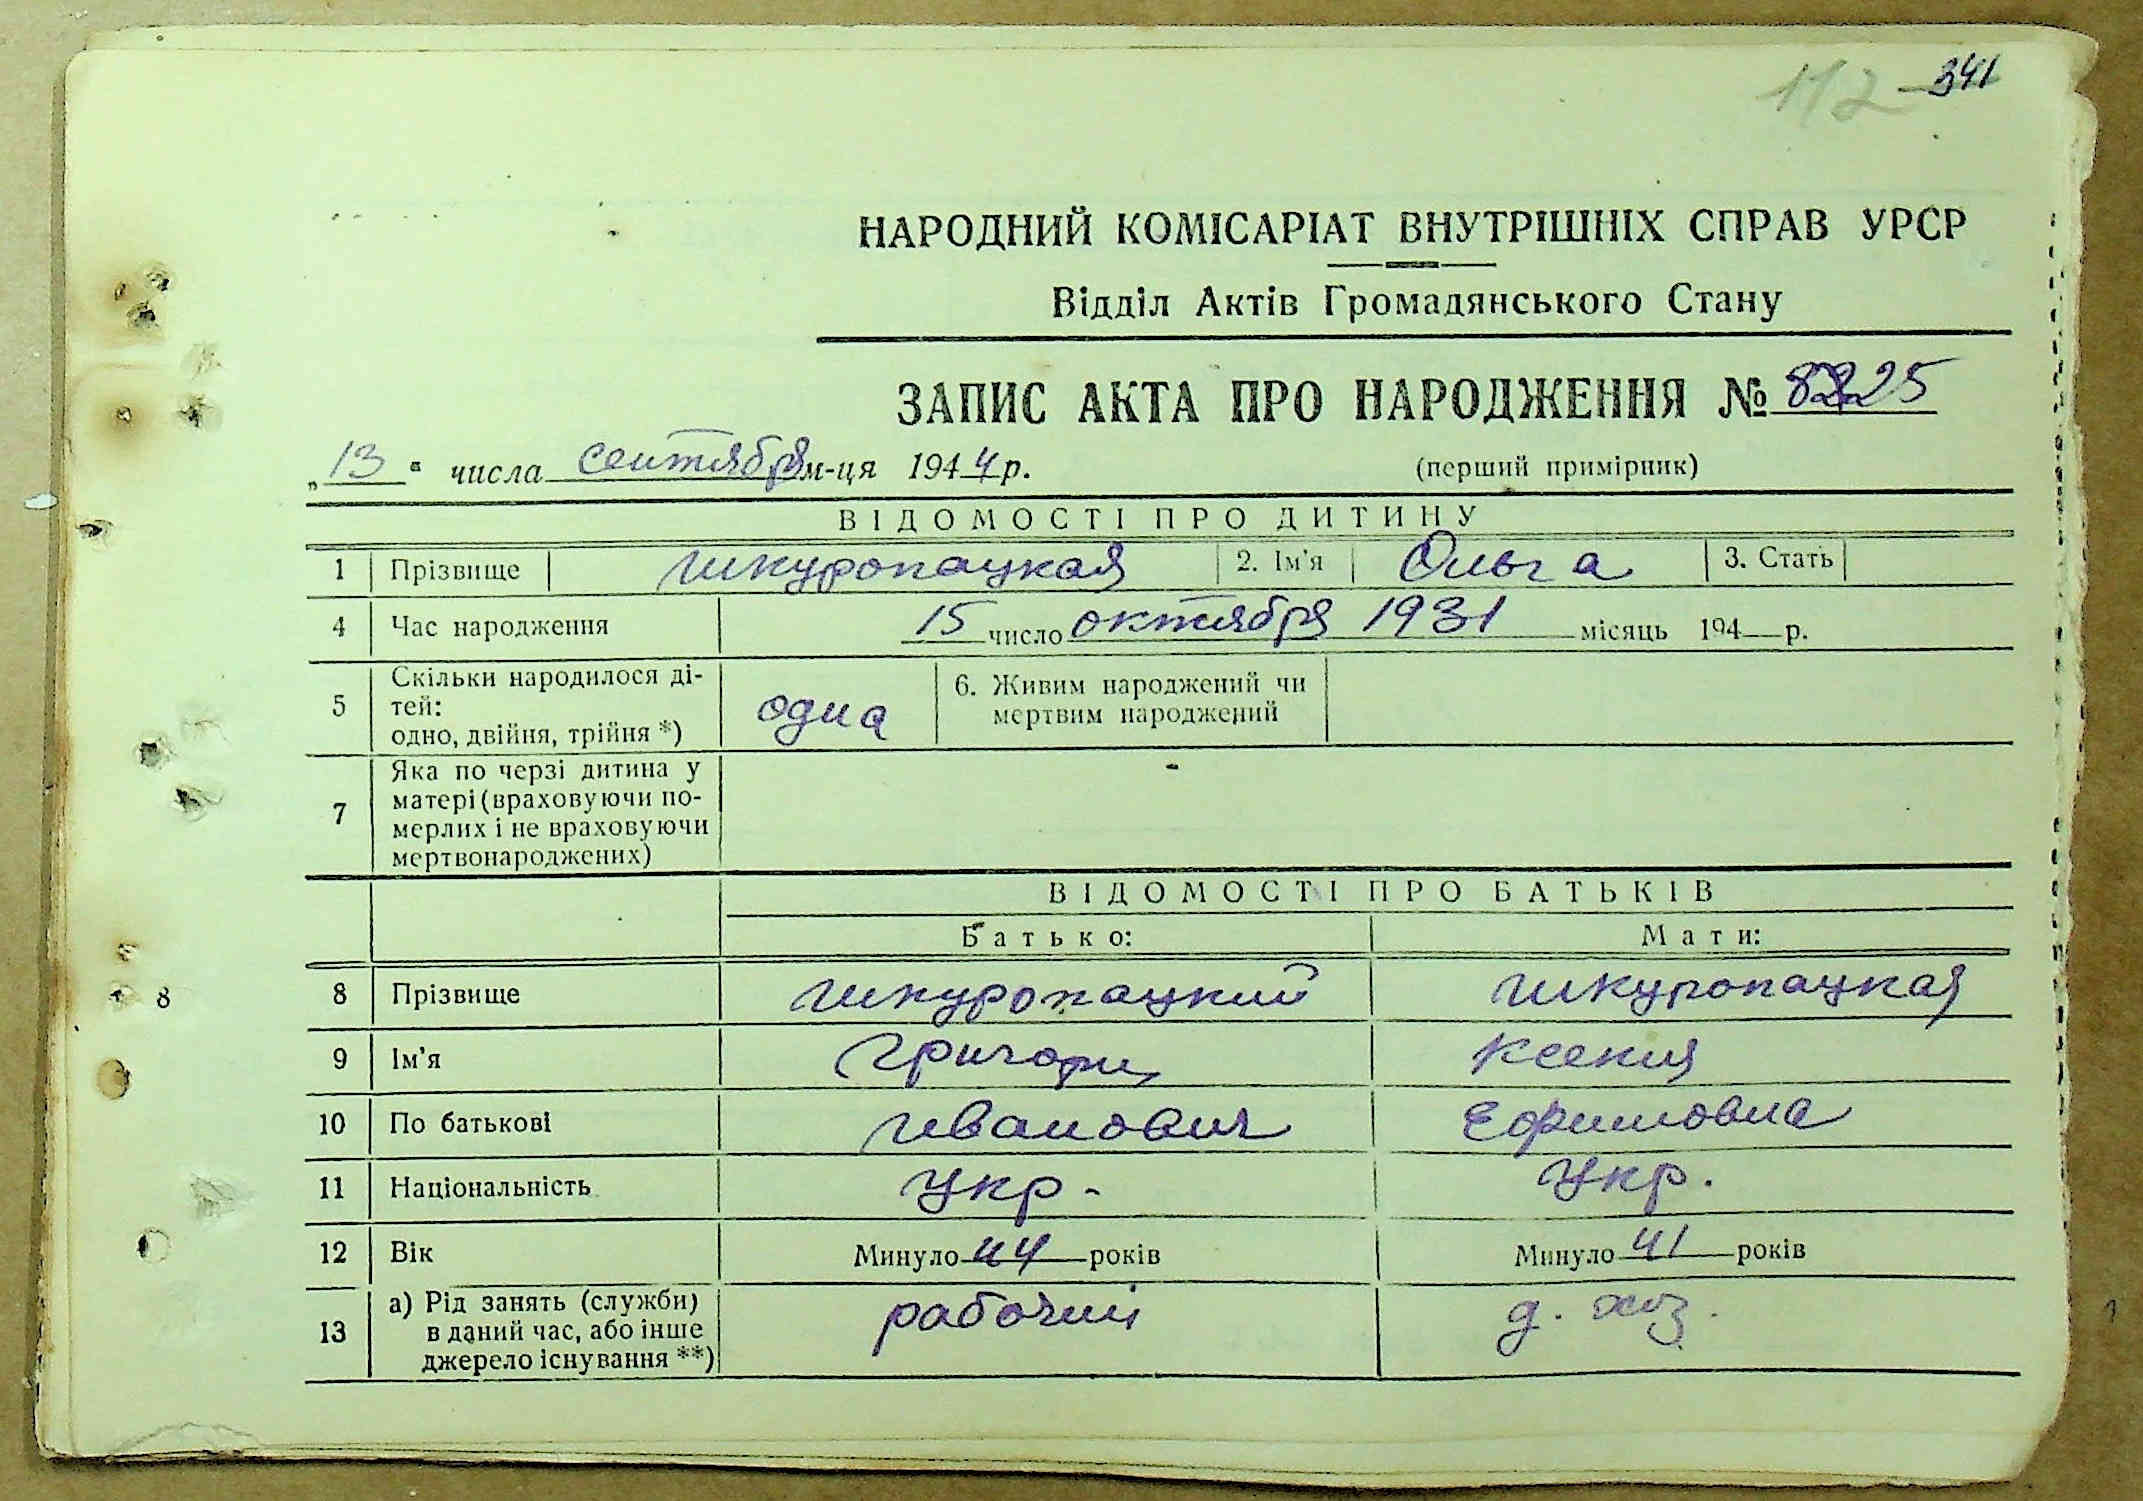 112 341
НАРОДНИЙ КОМІСАРІАТ ВНУТРІШНІХ СПРАВ УРСР
Відділ Актів Громадянського Стану
ЗАПИС АКТА ПРО НАРОДЖЕННЯ №
„13" числа сентября м-ця 1944 р. (перший примірник)
ВІДОМОСТІ ПРО ДИТИНУ
1 Прізвище Шкуропацкая 2. Ім'я Ольга 3. Стать
4 Час народження 15 число октября 1931 місяць 194 р.
5 Скільки народилося ді-
тей:
одно, двійня, трійня *) одна 6. Живим народжений чи
мертвим народжений
7 Яка по черзі дитина у
матері (враховуючи по-
мерлих і не враховуючи
мертвонароджених)
ВІДОМОСТІ ПРО БАТЬКІВ
Батько: Мати:
8 8 Прізвище Шкуропацкий Шкуропацкая
9 Ім'я Григори Ксения
10 По батькові Иванович Ефимовна
11 Національність Укр. Укр.
12 Вік Минуло 44 років Минуло 41 років
13 а) Рід занять (служби)
в даний час, або інше
джерело існування **) рабочий д. хоз.